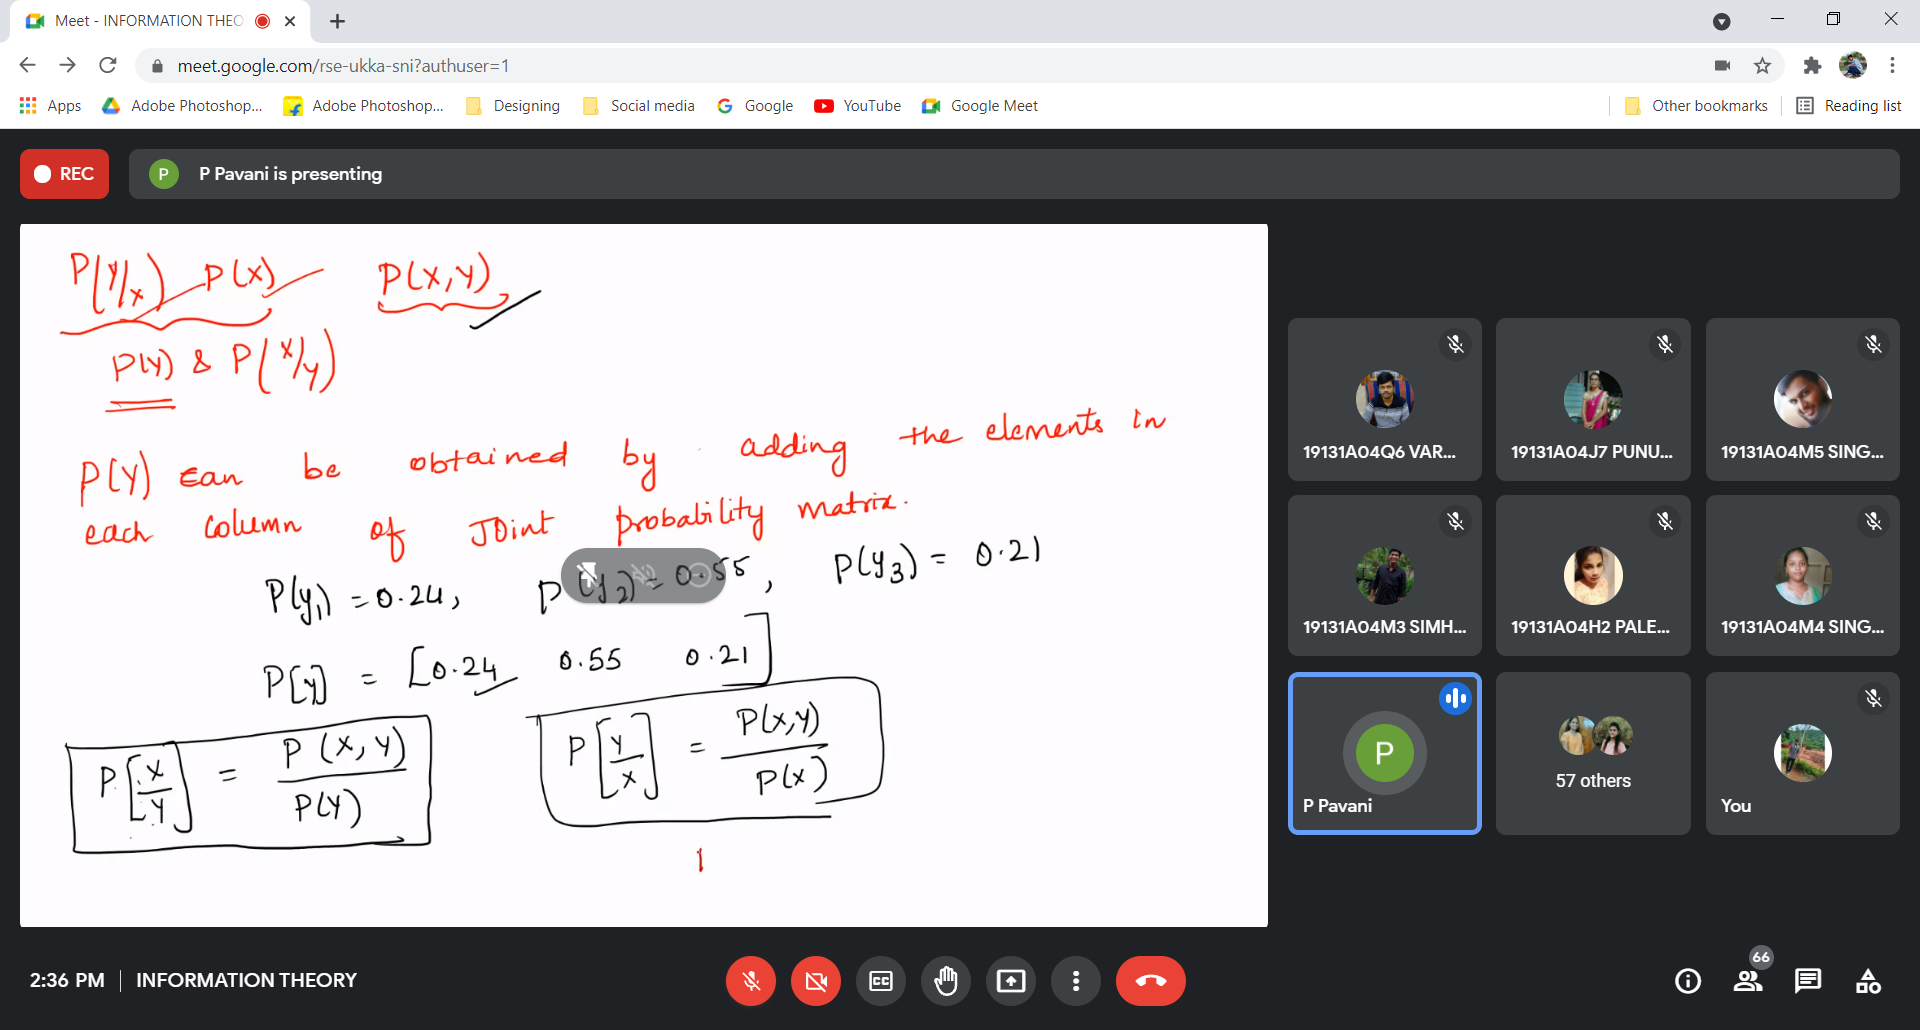 Meet - INFORMATION THEO
meet.google.com/rse-ukka-sni?authuser=1
Apps Adobe Photoshop... Adobe Photoshop... Designing Social media Google YouTube Google Meet Other bookmarks Reading list
REC
P P Pavani is presenting
P(Y/x) P(x) P(x,y)
P(Y) & P(X/Y)
P(Y) can be obtained by adding the elements in
each column of Joint probability matrix.
P(y1) = 0.24, P(y2) = 0.55, P(y3) = 0.21
P[y] = [0.24 0.55 0.21]
P[X/Y] = P(X,Y)/P(Y) P[Y/X] = P(X,Y)/P(X)
1
19131A04Q6 VAR... 19131A04J7 PUNU... 19131A04M5 SING...
19131A04M3 SIMH... 19131A04H2 PALE... 19131A04M4 SING...
P
P Pavani
57 others
You
2:36 PM INFORMATION THEORY
CC
66